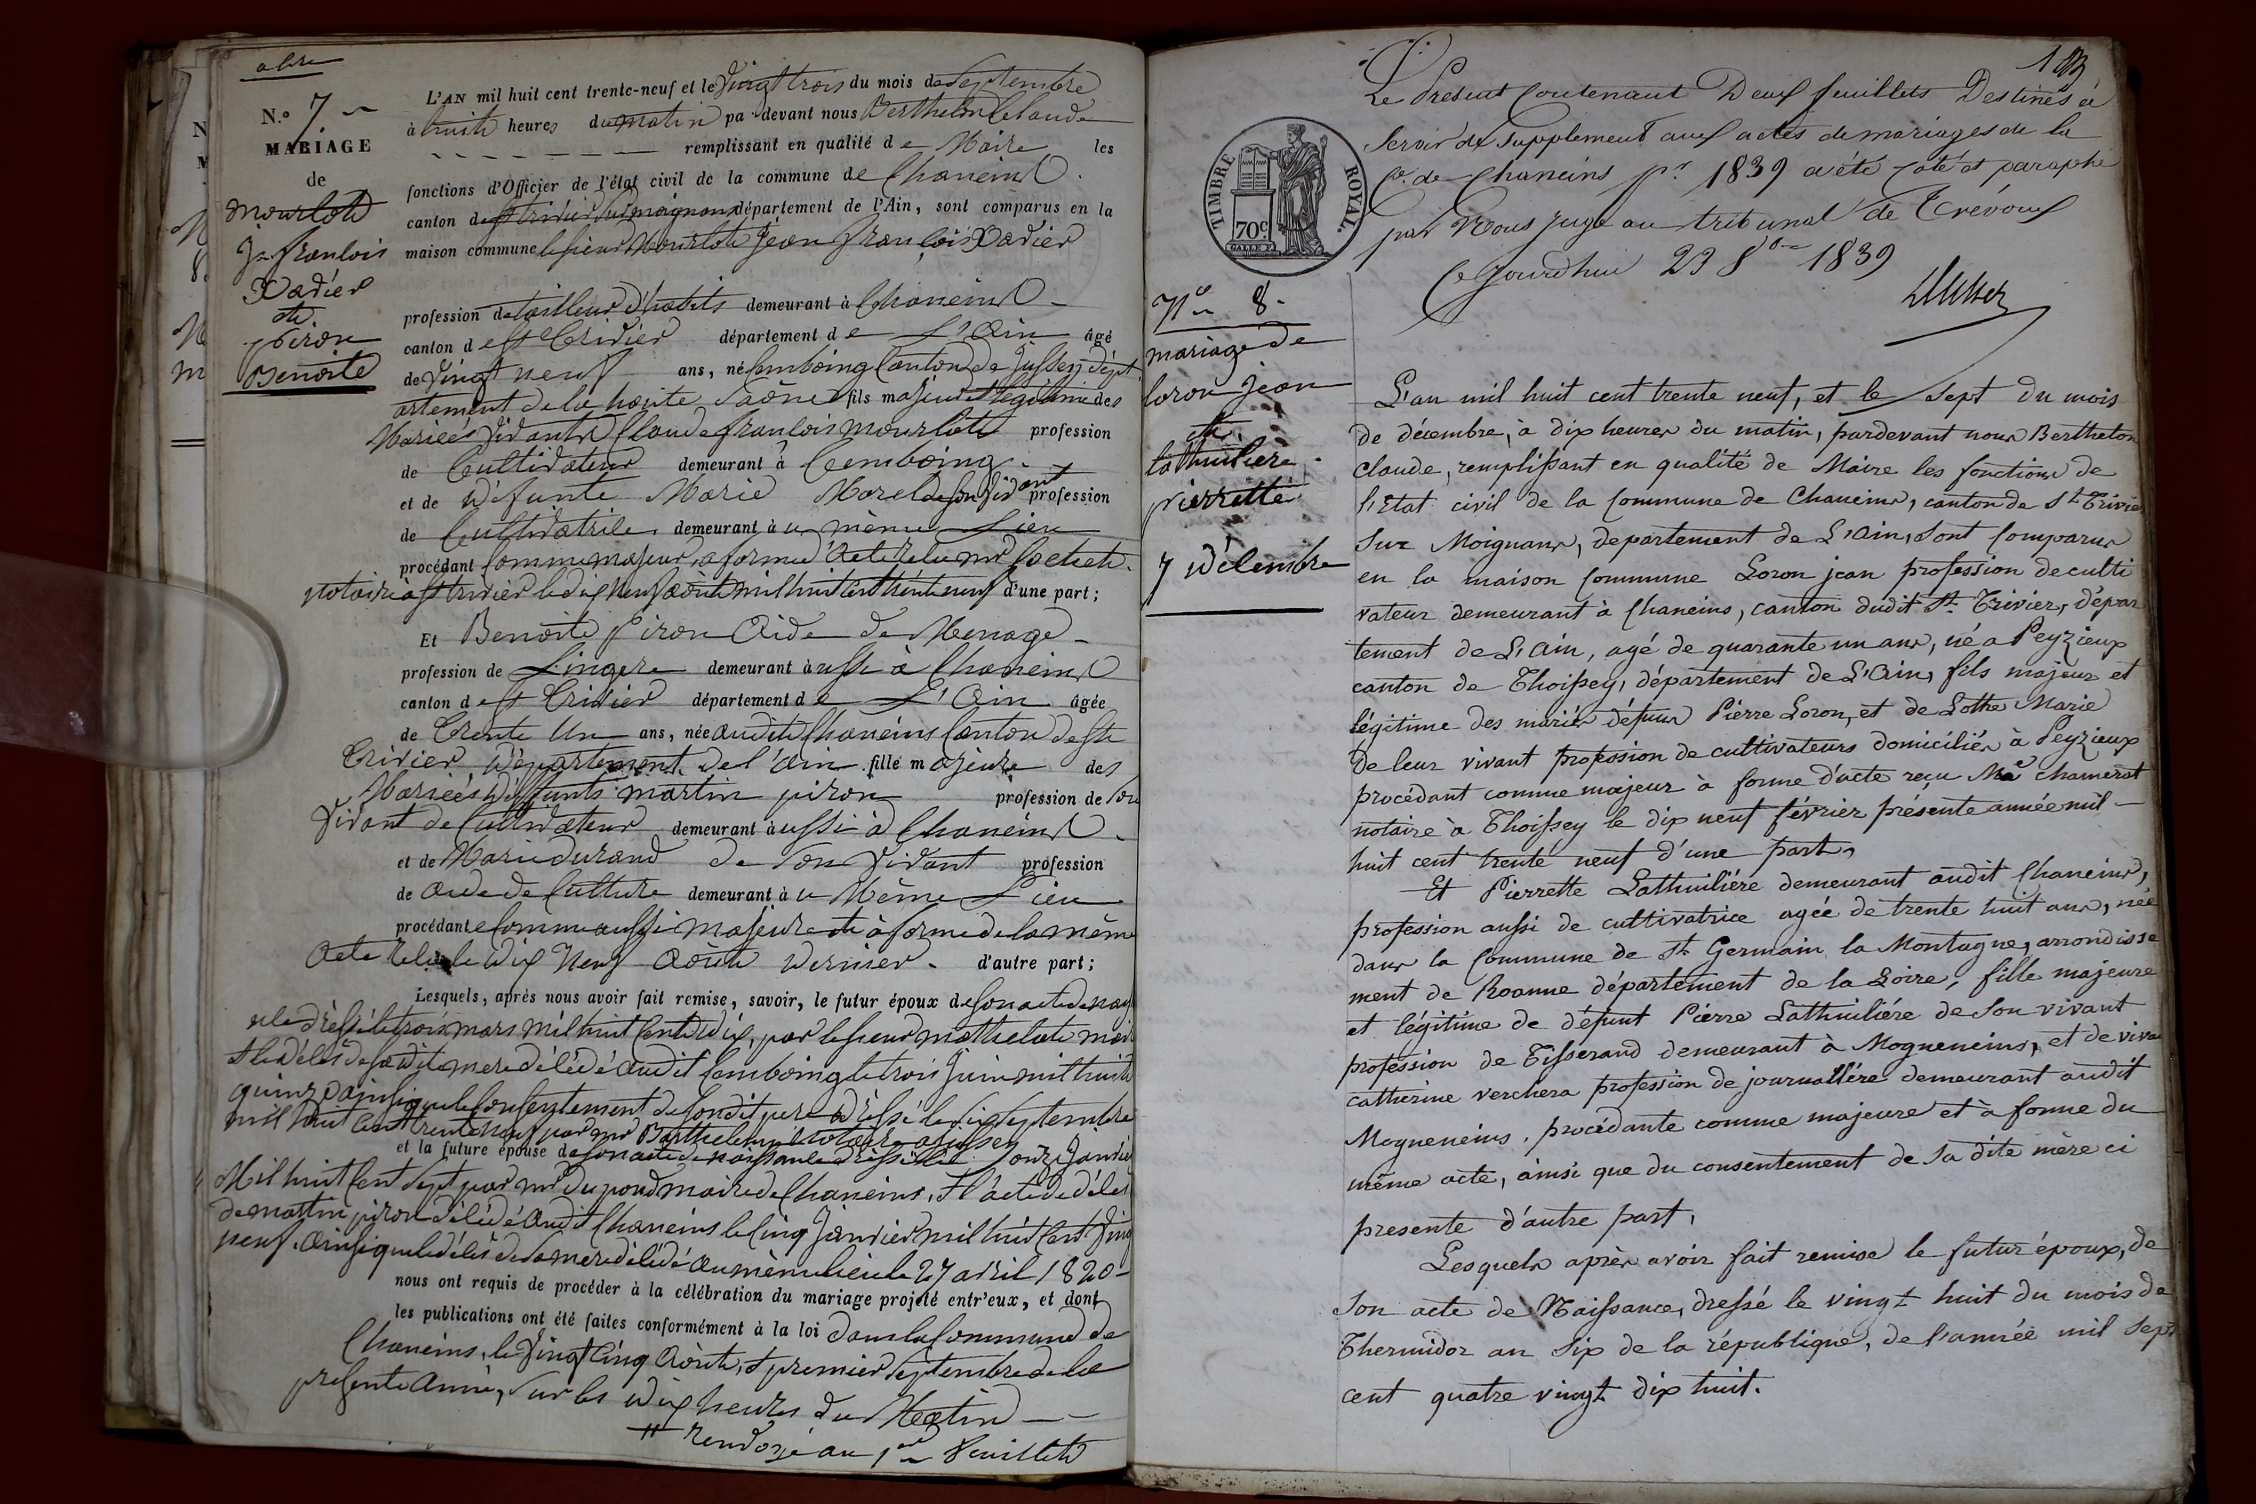 a lire
N.o 7
MARIAGE
de
mourlot
Jn françois
Xavier
et
piron
Benoite
L'AN mil huit cent trente-neuf et le Vingt trois du mois de Septembre
à huit heures du matin par-devant nous Berthelon Claude
remplissant en qualité de Maire les
fonctions d'Officier de l'état civil de la commune de Chaneins
canton de st trivier sur moignans département de l'Ain, sont comparus en la
maison commune le sieur Mourlot Jean françois Xavier
profession de tailleur d'habits demeurant à Chaneins
canton de st Trivier département de L'Ain âgé
de Vingt neuf ans, né Cemboing Canton de Jussey dép
artement de la haute Saône fils majeur et légitime des
Mariés Vivants Claude françois mourlot profession
de Cultivateur demeurant à Cemboing
et de Défunte Marie Morel de son Vivant profession
de Cultivatrice demeurant au même Lieu
procédant Comme majeur, a forme d'Acte Recu mr Cochet
Notaire à st trivier le dix Neuf août mil huit Cent trente neuf d'une part;
Et Benoite piron Aide de Menage
profession de Lingere demeurant aussi à Chaneins
canton de st Trivier département de L'Ain âgée
de Trente Un ans, née audit Chaneins Canton de st
Trivier Département de l'Ain fille majeure des
Mariés Défunts martin piron profession de Son
Vivant de Cultivateur demeurant aussi à Chaneins
et de Marie durand de Son Vivant profession
de Aide de Culture demeurant au Même Lieu
procédante Comme aussi majeure et à forme de la même
Acte Recu le Dix Neuf Août Dernier. d'autre part;
Lesquels, après nous avoir fait remise, savoir, le futur époux de son acte de nais
dressé le trois mars mil huit Cent Dix, par le sieur mathelat
décès de sadite mere décédé audit Cemboing le trois Juin mil huit
quinze ainsi que le Consentement de sondit pere dressé le six septembre
mil huit Cent trente neuf par mr Barthelemi Notaire a Jussey
et la future épouse de son acte de naissance dressé le onze Janvier
Mil huit Cent Sept par mr Dupond maire de Chaneins, et l'acte de décès
de martin piron décédé audit Chaneins le Cinq Janvier mil huit Cent Vingt
neuf. Ainsi que le décès de sa mere décédé au même lieu le 27 avril 1820
nous ont requis de procéder à la célébration du mariage projeté entr'eux, et dont
les publications ont été faites conformément à la loi dans la Commune de
Chaneins, le Vingt Cinq Août, et premier Septembre de la
presente année, Sur les Dix heures du Matin
renvoyé au 1er feuillet
Le Present Contenant Deux feuillets Destinés à
Servir de Supplement aux actes de mariages de la
Ce de Chaneins pr 1839 a été coté et paraphé
par Nous juge au tribunal de Trévoux
Ce jourdhui 23 8bre 1839
TIMBRE ROYAL.
70c
No 8.
mariage de
loron jean
et
lathuilière
pierrette
7 Décembre
L'an mil huit cent trente neuf, et le Sept du mois
de décembre, à dix heures du matin, pardevant nous Berthelon
claude, remplissant en qualité de Maire les fonctions de
l'Etat civil de la Commune de Chaneins, canton de St Trivier
Sur Moignans, departement de L'Ain, Sont Comparus
en la maison Commune Loron jean profession de culti
vateur demeurant à Chaneins, canton dudit St Trivier, dépar
tement de L'Ain, agé de quarante un ans, né a Peyzieux
canton de Thoissey, département de L'Ain, fils majeur et
légitime des mariés défunts Pierre Loron, et de Lothe Marie
de leur vivant profession de cultivateurs domiciliés à Peyzieux
procédant comme majeur à forme d'acte reçu Me chamerat
notaire à Thoissey le dix neuf février présente année mil
huit cent trente neuf d'une part,
Et Pierrette Lathuilière demeurant audit Chaneins,
profession aussi de cultivatrice agée de trente huit ans, née
dans la Commune de St Germain la Montagne, arrondisse
ment de Roanne département de la Loire, fille majeure
et légitime de défunt Pierre Lathuilière de Son vivant
profession de Tisserand demeurant à Mogneneins, et de viva
catherine verchera profession de journalière demeurant audit
Mogneneins, procédante comme majeure et à forme du
même acte, ainsi que du consentement de Sa dite mère ci
presente d'autre part,
Lesquels après avoir fait remise le futur époux, de
Son acte de Naissance, dressé le vingt huit du mois de
Thermidor an Six de la république, de l'année mil Sept
cent quatre vingt dix huit.